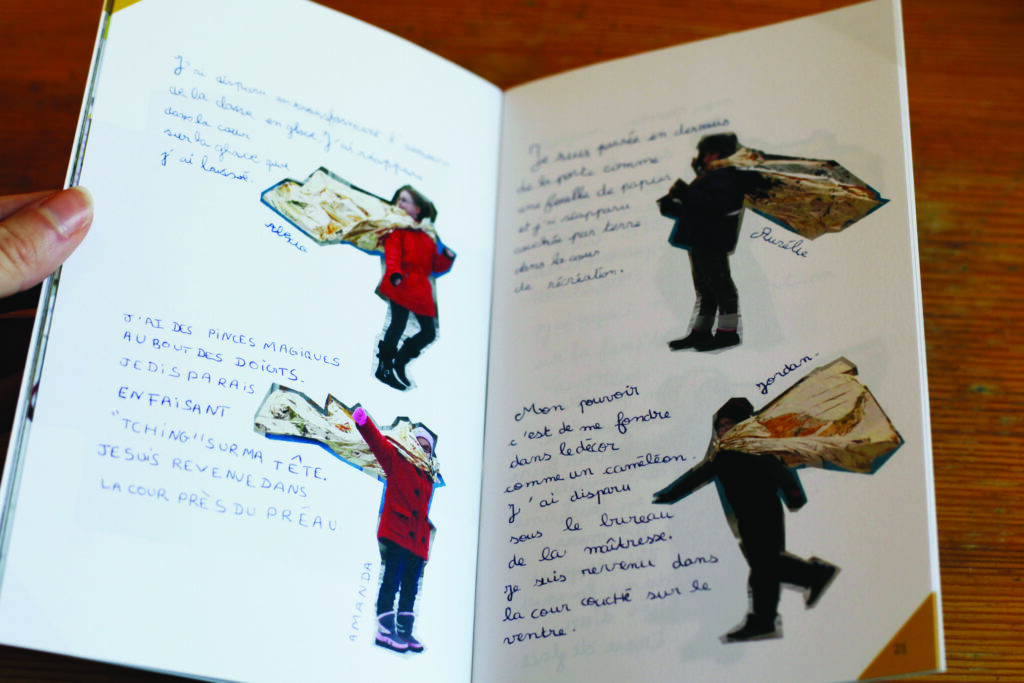 J'ai disparu en transformant l'armoire
de la classe en glace. J'ai réapparu
dans la cour
sur la glace que
j'ai laissé.
Alexia
J'AI DES PINCES MAGIQUES
AU BOUT DES DOIGTS.
JE DISPARAIS
EN FAISANT
"TCHING" SUR MA TÊTE.
JE SUIS REVENUE DANS
LA COUR PRÈS DU PRÉAU.
AMANDA
Je suis passée en dessous
de la porte comme
une feuille de papier
et j'ai réapparu
couchée par terre
dans la cour
de récréation.
Aurélie
Mon pouvoir
c'est de me fondre
dans le décor
comme un caméléon.
J'ai disparu
sous le bureau
de la maîtresse.
Je suis revenu dans
la cour couché sur le
ventre.
Jordan
21